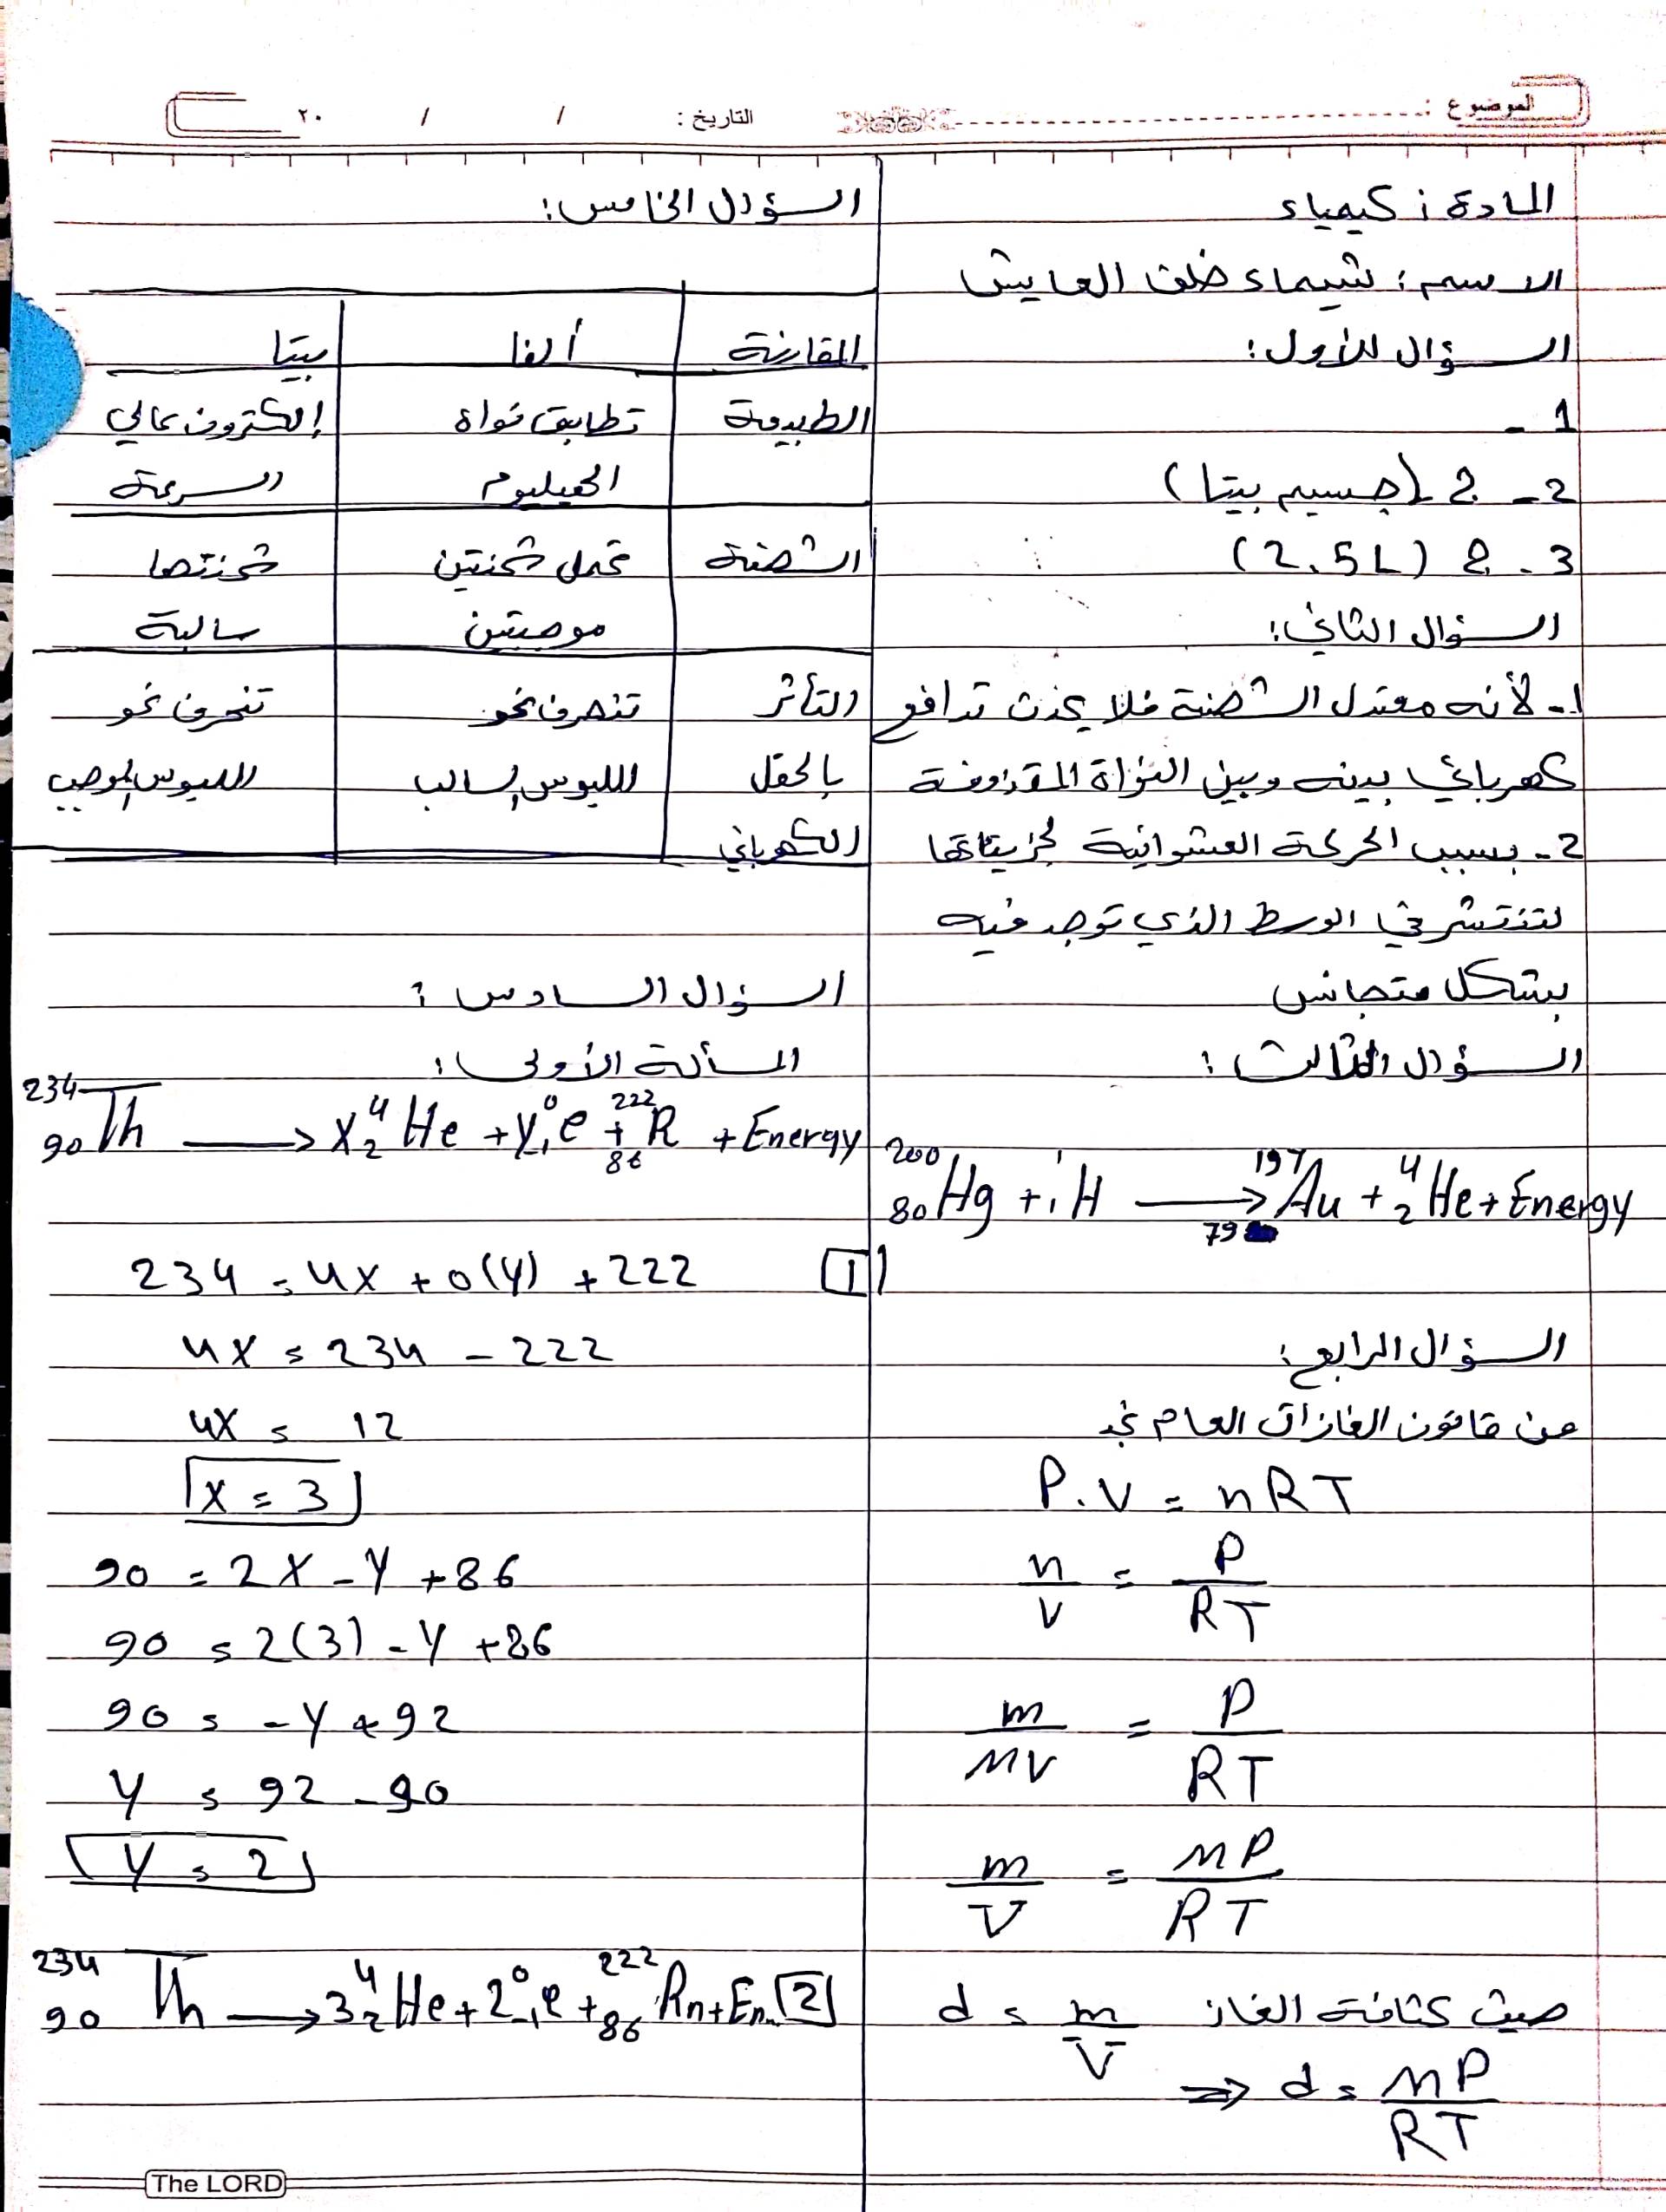 الموضوع :
التاريخ : / / ٢٠
المادة : كيمياء
الاسم : شيماء خلف العايش
السؤال الأول :
1 -
2 - 2 (جسيم بيتا)
3 - 2 (2.5L)
السؤال الثاني :
1- لأنه معتدل الشحنة فلا يحدث تدافع
كهربائي بينه وبين النواة المقذوفة
2- بسبب الحركة العشوائية لجزيئاتها
لتنتشر في الوسط الذي توجد فيه
بشكل متجانس
السؤال الثالث :
²⁰⁰₈₀Hg + ¹₁H → ¹⁹⁷₇₉Au + ⁴₂He + Energy
السؤال الرابع :
من قانون الغازات العام نجد
P.V = nRT
n/V = P/RT
m/MV = P/RT
m/V = MP/RT
حيث كثافة الغاز d = m/V
⇒ d = MP/RT
السؤال الخامس :
المقارنة | ألفا | بيتا
الطبيعة | تطابق نواة | إلكترون عالي
الهيليوم | السرعة
الشحنة | تحمل شحنتين | شحنتها
موجبتين | سالبة
التأثر | تنحرف نحو | تنحرف نحو
بالحقل | اللبوس السالب | اللبوس الموجب
الكهربائي
السؤال السادس :
المسألة الأولى :
²³⁴₉₀Th → x ⁴₂He + y ⁰₋₁e + ²²²₈₆R + Energy
1 234 = 4x + 0(y) + 222
4x = 234 - 222
4x = 12
x = 3
90 = 2x - y + 86
90 = 2(3) - y + 86
90 = -y + 92
y = 92 - 90
y = 2
2 ²³⁴₉₀Th → 3 ⁴₂He + 2 ⁰₋₁e + ²²²₈₆Rn + En.
The LORD